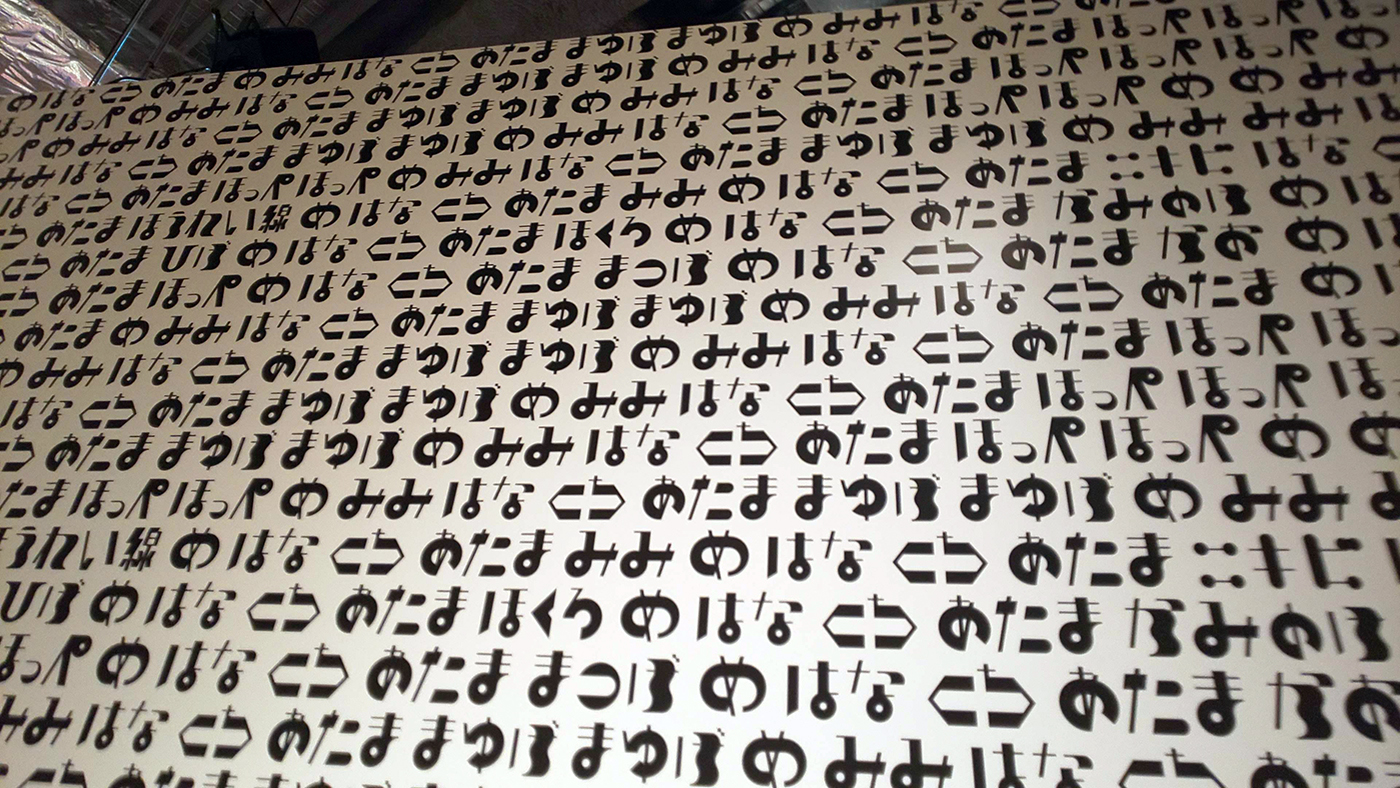 めはな あたま め みみ はな くち あたま まゆげ まゆげ め みみ はな
ほっぺ ほっぺ め みみ はな くち あたま まゆげ まゆげ め みみ はな くち あたま ほっぺ ほっぺ
め みみ はな くち あたま まゆげ まゆげ め みみ はな くち あたま ほっぺ ほっぺ め
みみ はな くち あたま まゆげ まゆげ め みみ はな くち あたま ほっぺ ほっぺ め め みみ
はな くち あたま ほっぺ ほっぺ め みみ はな くち あたま まゆげ まゆげ め みみ みみ
くち あたま ほうれい線 め はな くち あたま みみ め はな くち あたま ニキビ はな くち
くち あたま ひげ め はな くち あたま ほくろ め はな くち あたま かみのけ め は
くち あたま ほっぺ め はな くち あたま まつげ め はな くち あたま かお め は
あたま め みみ はな くち あたま まゆげ まゆげ め みみ はな くち あたま め
め みみ はな くち あたま まゆげ まゆげ め みみ はな くち あたま ほっぺ ほっ
はな くち あたま まゆげ まゆげ め みみ はな くち あたま ほっぺ ほっぺ ほ
ち あたま まゆげ まゆげ め みみ はな くち あたま ほっぺ ほっぺ め め
たま ほっぺ ほっぺ め みみ はな くち あたま まゆげ まゆげ め みみ
ほうれい線 め はな くち あたま みみ め はな くち あたま ニキビ
ひげ め はな くち あたま ほくろ め はな くち あたま かみのけ
ほっぺ め はな くち あたま まつげ め はな くち あたま かお
みみ はな くち あたま まゆげ まゆげ め みみ はな くち あたま